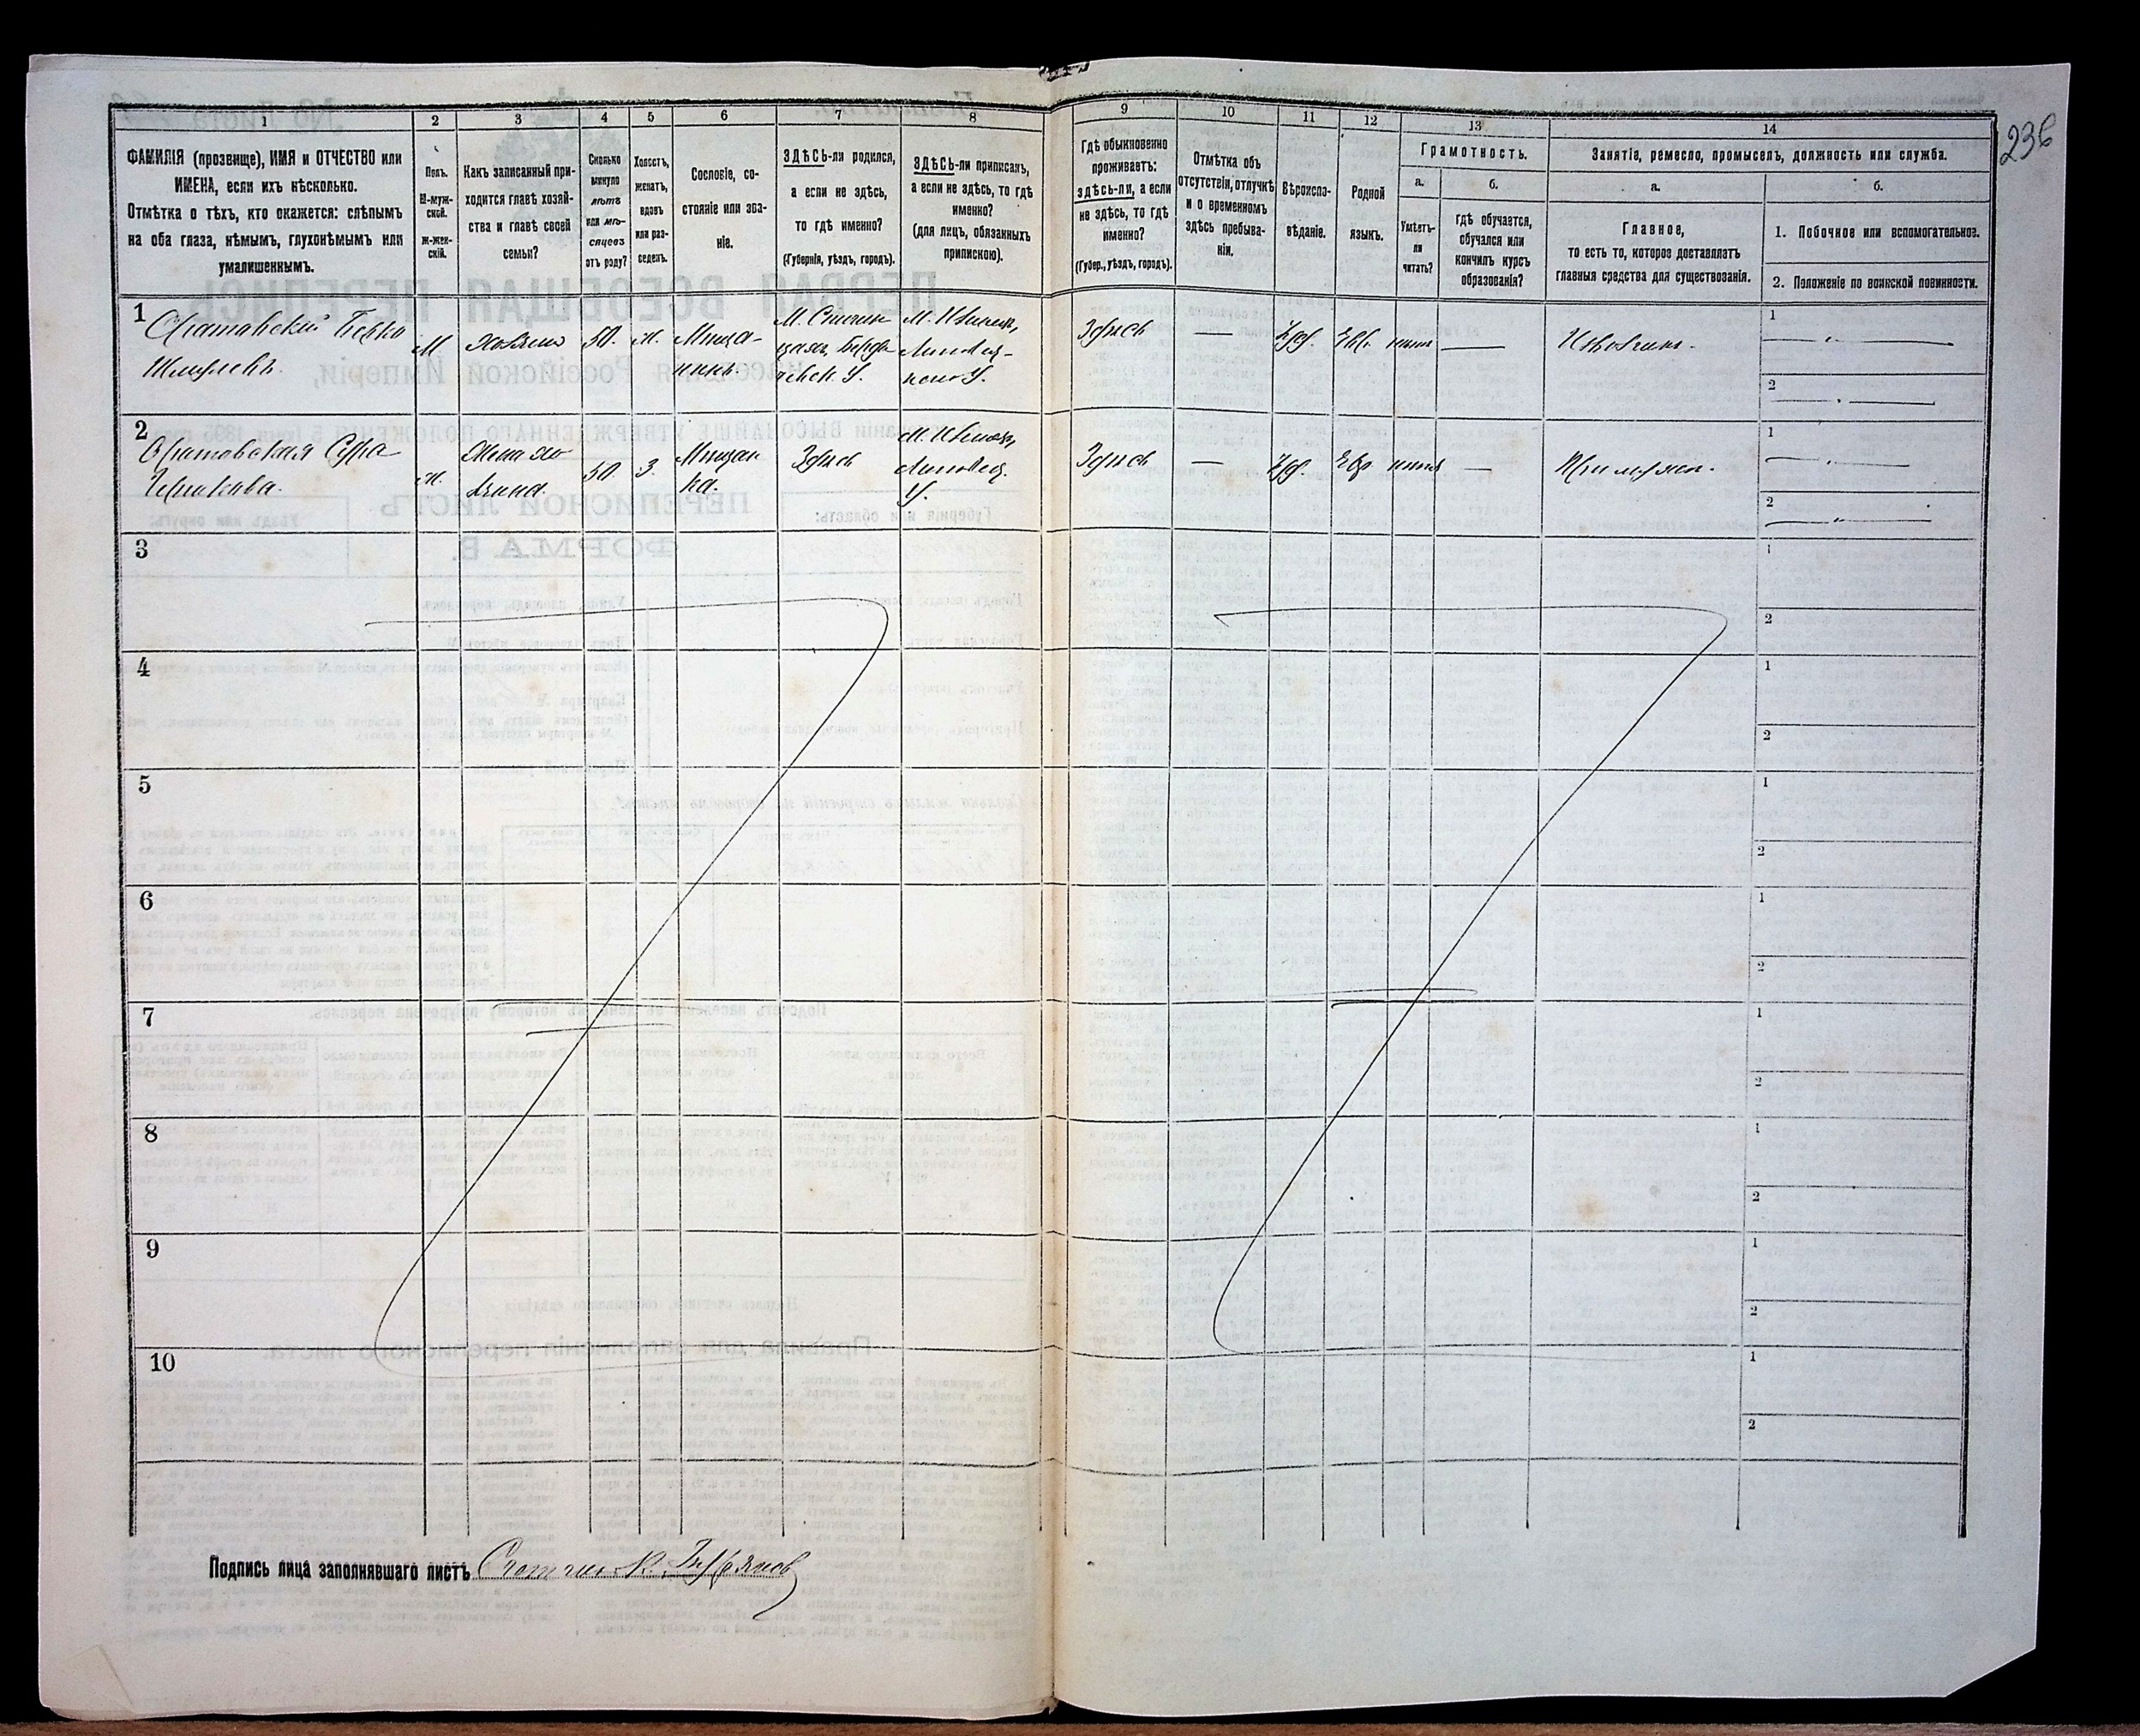 236
1
2
3
4
5
6
7
8
9
10
11
12
13
14
ФАМИЛІЯ (прозвище), ИМЯ и ОТЧЕСТВО или
ИМЕНА, если ихъ нѣсколько.
Отмѣтка о тѣхъ, кто окажется: слѣпымъ
на оба глаза, нѣмымъ, глухонѣмымъ или
умалишеннымъ.
Полъ.
М-муж-
ской.
ж-жен-
скій.
Какъ записанный при-
ходится главѣ хозяй-
ства и главѣ своей
семьи?
Сколько
минуло
лѣтъ
или мѣ-
сяцевъ
отъ роду?
Холостъ,
женатъ,
вдовъ
или раз-
веденъ.
Сословіе, со-
стояніе или зва-
ніе.
ЗДѢСЬ-ли родился,
а если не здѣсь,
то гдѣ именно?
(Губернія, уѣздъ, городъ).
ЗДѢСЬ-ли приписанъ,
а если не здѣсь, то гдѣ
именно?
(для лицъ, обязанныхъ
припискою).
Гдѣ обыкновенно
проживаетъ:
здѣсь-ли, а если
не здѣсь, то гдѣ
именно?
(Губер., уѣздъ, городъ).
Отмѣтка объ
отсутствіи, отлучкѣ
и о временномъ
здѣсь пребыва-
ніи.
Вѣроиспо-
вѣданіе.
Родной
языкъ.
Грамотность.
а.
б.
Умѣетъ-
ли
читать?
гдѣ обучается,
обучался или
кончилъ курсъ
образованія?
Занятіе, ремесло, промыселъ, должность или служба.
а.
б.
Главное,
то есть то, которое доставляетъ
главныя средства для существованія.
1. Побочное или вспомогательное.
2. Положеніе по воинской повинности.
1
Оратовскій Берко
Шмулевъ.
М
Хозяинъ
50.
ж.
Мѣща-
нинъ.
М.
Бердич-
чевск. У.
М.
Липовец-
каго У.
Здѣсь
—
Іуд.
Евр.
—
Извощикъ.
1
2
2
Оратовская Сура
ж.
Жена хо-
зяина.
50.
З.
Мѣщан-
ка.
Здѣсь
М.
Липовец.
У.
Здѣсь
—
Іуд.
Евр.
—
При мужѣ.
1
2
3
1
2
4
1
2
5
1
2
6
1
2
7
1
2
8
1
2
9
1
2
10
1
2
Подпись лица заполнявшаго листъ Счетчикъ